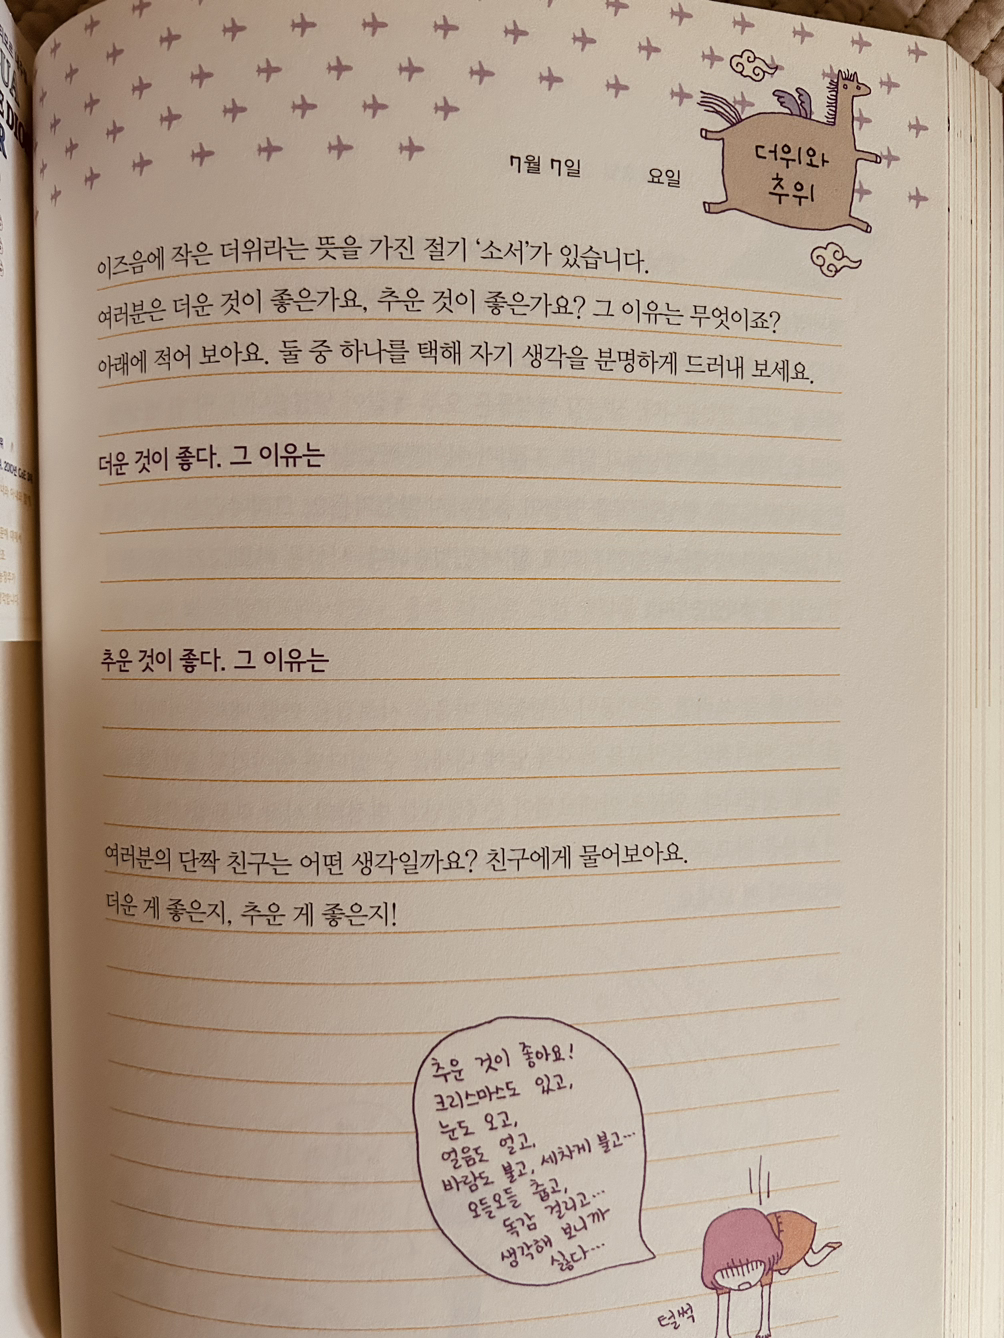 7월 7일 요일
더위와
추위
이즈음에 작은 더위라는 뜻을 가진 절기 ‘소서’가 있습니다.
여러분은 더운 것이 좋은가요, 추운 것이 좋은가요? 그 이유는 무엇이죠?
아래에 적어 보아요. 둘 중 하나를 택해 자기 생각을 분명하게 드러내 보세요.
더운 것이 좋다. 그 이유는
추운 것이 좋다. 그 이유는
여러분의 단짝 친구는 어떤 생각일까요? 친구에게 물어보아요.
더운 게 좋은지, 추운 게 좋은지!
추운 것이 좋아요!
크리스마스도 있고,
눈도 오고,
얼음도 얼고,
바람도 불고, 세차게 불고…
오들오들 춥고,
독감 걸리고…
생각해 보니까
싫다…
털썩